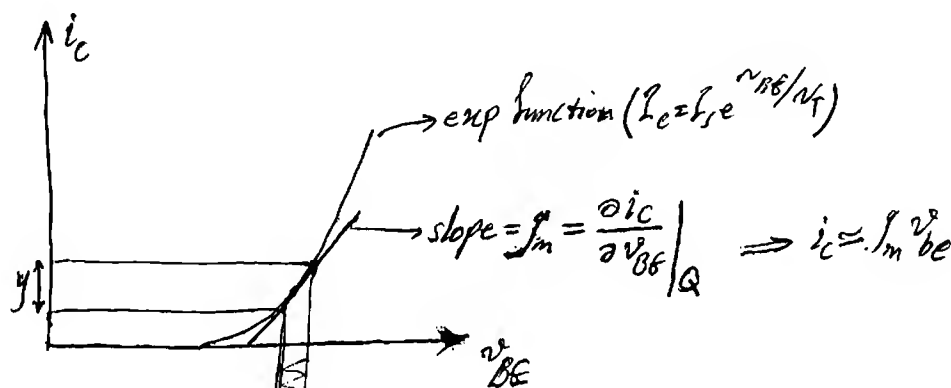 i_C
exp function (I_c = I_s e^{v_{BE}/v_T})
slope = g_m = ∂i_C/∂v_{BE} |_Q ⇒ i_c ≃ g_m v_{be}
y
v_{BE}